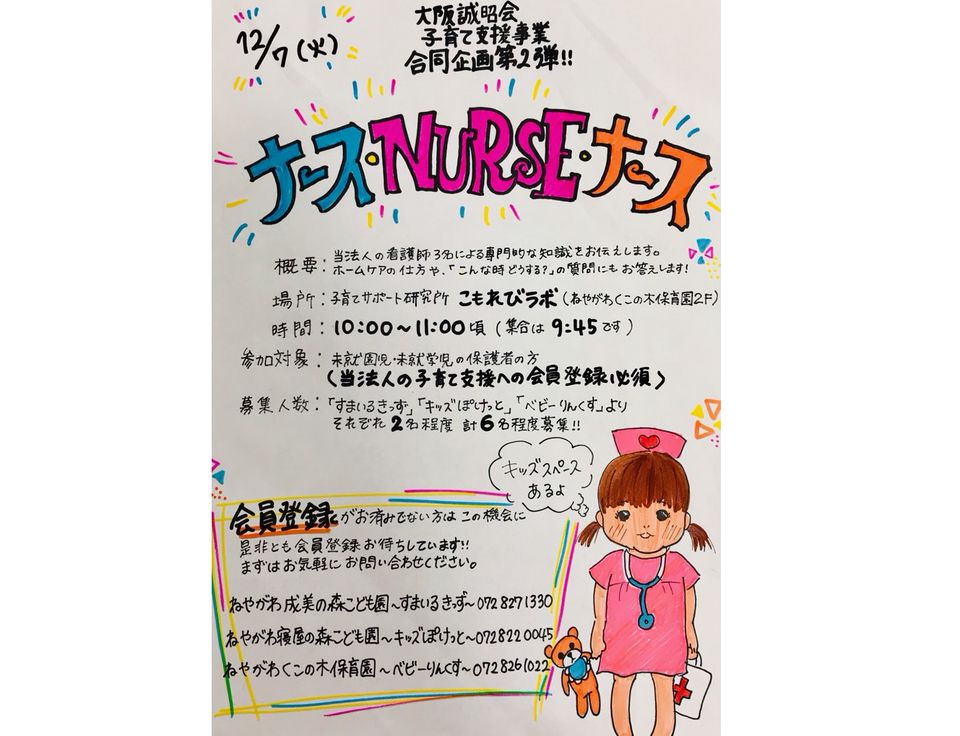 12/7(火)
大阪誠昭会
子育て支援事業
合同企画第2弾!!
ナース・NURSE・ナース
概要: 当法人の看護師3名による専門的な知識をお伝えします。
ホームケアの仕方や、「こんな時どうする?」の質問にもお答えします!
場所: 子育てサポート研究所 こもれびラボ(ねやがわくこの木保育園2F)
時間: 10:00~11:00頃 (集合は 9:45です)
参加対象: 未就園児・未就学児の保護者の方
(当法人の子育て支援への会員登録必須)
募集人数: 「すまいるきっず」「キッズぽけっと」「ベビーりんくす」より
それぞれ2名程度 計6名程度募集!!
キッズスペース
あるよ
会員登録がお済みでない方はこの機会に
是非とも会員登録お待ちしています!!
まずはお気軽にお問い合わせください。
ねやがわ成美の森こども園~すまいるきっず~072 827 1330
ねやがわ寝屋の森こども園~キッズぽけっと~072 822 0045
ねやがわくこの木保育園~ベビーりんくす~072 826 1022